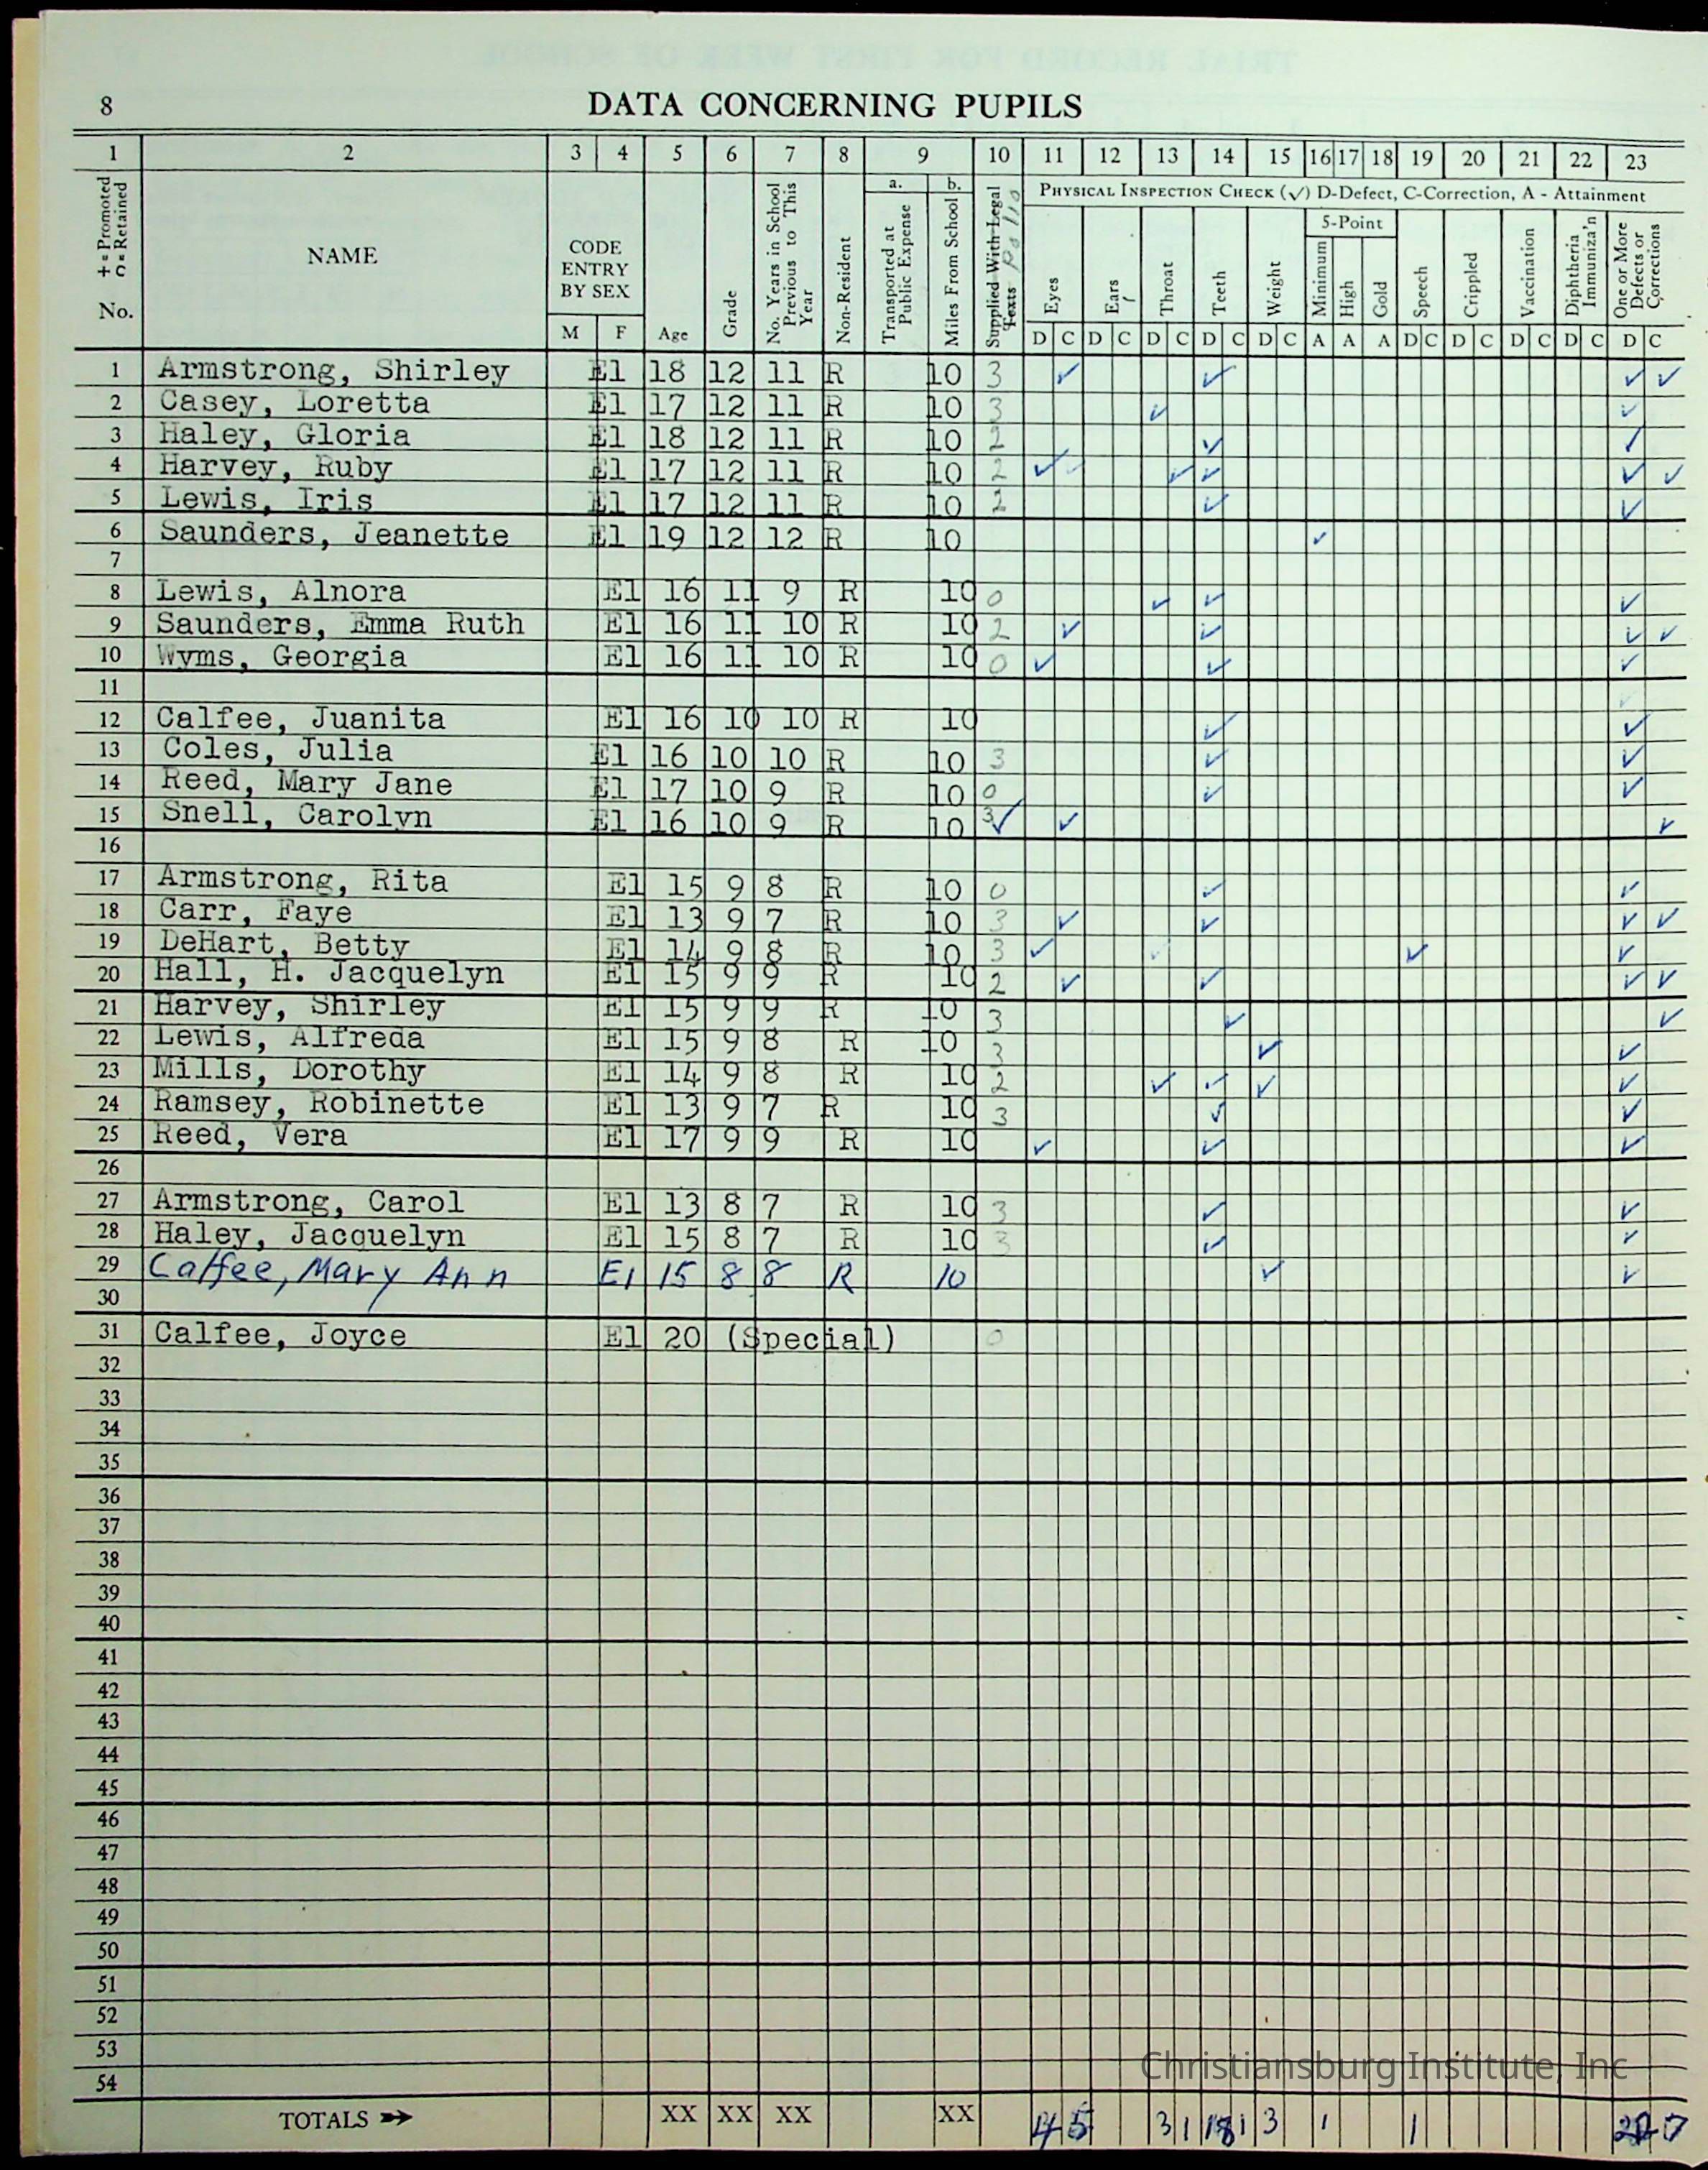 8 DATA CONCERNING PUPILS
1 2 3 4 5 6 7 8 9 10 11 12 13 14 15 16 17 18 19 20 21 22 23
+ = Promoted
C = Retained
No.
NAME
CODE
ENTRY
BY SEX
M F
Age
Grade
No. Years in School
Previous to This
Year
Non-Resident
a.
Transported at
Public Expense
b.
Miles From School
Supplied With Legal
Texts
Polio
PHYSICAL INSPECTION CHECK (✓) D-Defect, C-Correction, A - Attainment
5-Point
Eyes
Ears
Throat
Teeth
Weight
Minimum
High
Gold
Speech
Crippled
Vaccination
Diphtheria
Immuniza'n
One or More
Defects or
Corrections
D C D C D C D C D C A A A D C D C D C D C D C
1 Armstrong, Shirley El 18 12 11 R 10 3 ✓ ✓ ✓ ✓
2 Casey, Loretta El 17 12 11 R 10 3 ✓ ✓
3 Haley, Gloria El 18 12 11 R 10 2 ✓ ✓
4 Harvey, Ruby El 17 12 11 R 10 2 ✓ ✓ ✓ ✓ ✓ ✓
5 Lewis, Iris El 17 12 11 R 10 2 ✓ ✓
6 Saunders, Jeanette El 19 12 12 R 10 ✓
7
8 Lewis, Alnora El 16 11 9 R 10 0 ✓ ✓ ✓
9 Saunders, Emma Ruth El 16 11 10 R 10 2 ✓ ✓ ✓ ✓
10 Wyms, Georgia El 16 11 10 R 10 0 ✓ ✓ ✓
11
12 Calfee, Juanita El 16 10 10 R 10 ✓ ✓
13 Coles, Julia El 16 10 10 R 10 3 ✓ ✓
14 Reed, Mary Jane El 17 10 9 R 10 0 ✓ ✓
15 Snell, Carolyn El 16 10 9 R 10 3 ✓ ✓ ✓
16
17 Armstrong, Rita El 15 9 8 R 10 0 ✓ ✓
18 Carr, Faye El 13 9 7 R 10 3 ✓ ✓ ✓ ✓
19 DeHart, Betty El 14 9 8 R 10 3 ✓ ✓ ✓ ✓
20 Hall, H. Jacquelyn El 15 9 9 R 10 2 ✓ ✓ ✓ ✓
21 Harvey, Shirley El 15 9 9 R 10 3 ✓ ✓
22 Lewis, Alfreda El 15 9 8 R 10 3 ✓ ✓
23 Mills, Dorothy El 14 9 8 R 10 2 ✓ ✓ ✓ ✓
24 Ramsey, Robinette El 13 9 7 R 10 3 ✓ ✓
25 Reed, Vera El 17 9 9 R 10 ✓ ✓ ✓
26
27 Armstrong, Carol El 13 8 7 R 10 3 ✓ ✓
28 Haley, Jacquelyn El 15 8 7 R 10 3 ✓ ✓
29 Calfee, Mary Ann El 15 8 8 R 10 ✓ ✓
30
31 Calfee, Joyce El 20 (Special) 0
32
33
34
35
36
37
38
39
40
41
42
43
44
45
46
47
48
49
50
51
52
53
54
Christiansburg Institute, Inc
TOTALS XX XX XX XX 4 5 3 1 18 1 3 1 1 7